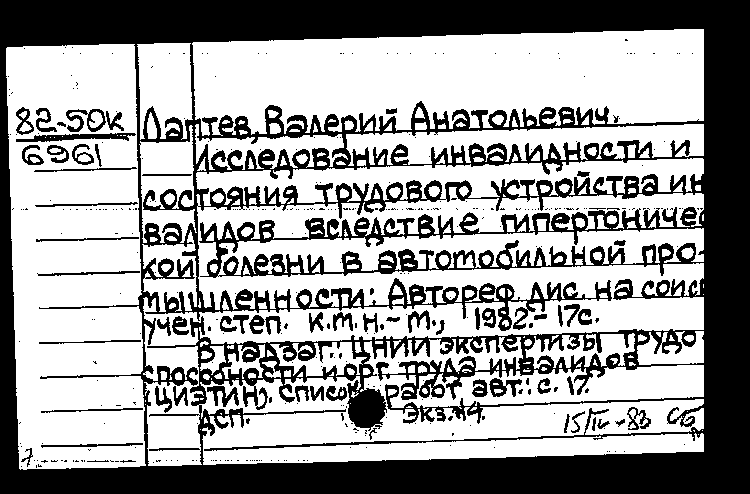 82-50к Лаптев, Валерий Анатольевич.
6961 Исследование инвалидности и
состояния трудового устройства ин
валидов вследствие гипертоничес
кой болезни в автомобильной про-
мышленности: Автореф. дис. на соиск
учен. степ. к.м.н.- М., 1982.- 17с.
В надзаг.: ЦНИИ экспертизы трудо-
способности и орг. труда инвалидов
(ЦИЭТИН). Список работ авт.: с. 17.
ДСП. Экз.№4.
15/IV-83
7